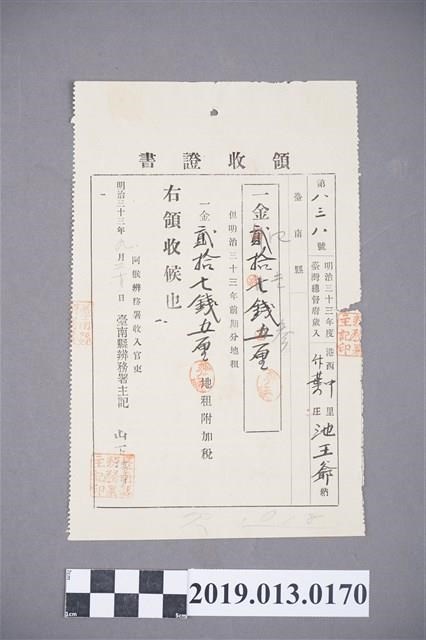 領收證書
第八三八號
明治三十三年度
臺灣總督府歲入
港西中里
庄池王爺納
臺南縣
一金貳拾七錢五厘
但明治三十三年前期分地租
一金貳拾七錢五厘 地租附加稅
右領收候也
明治三十三年九月二十日
阿猴辨務署收入官吏
臺南縣辨務署主記 山下
1cm
5cm
2019.013.0170